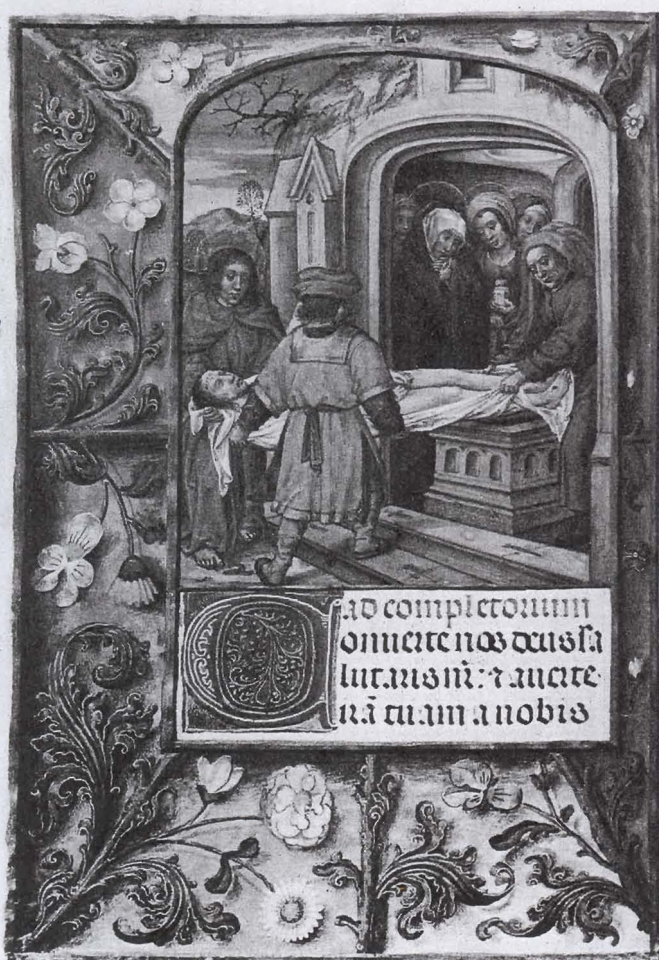 ad completorium
Conuerte nos deus sa
lutaris nr̄: ⁊ auerte
irā tuam a nobis